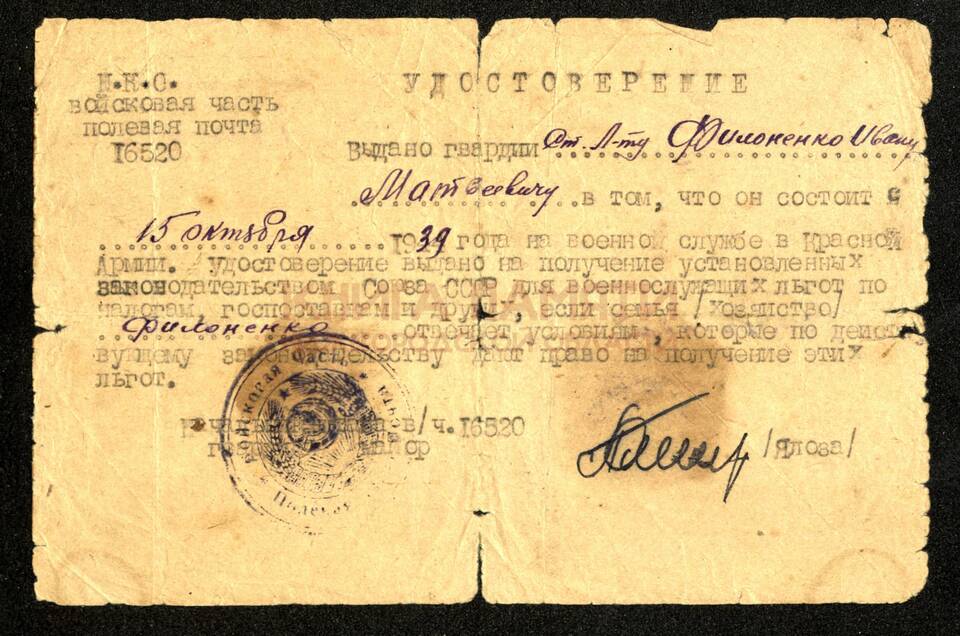 Н.К.О.
войсковая часть
полевая почта
16520
УДОСТОВЕРЕНИЕ
Выдано гвардии Ст. Л-ту Филоненко Ивану
Матвеевичу в том, что он состоит с
15 октября 1939 года на военной службе в Красной
Армии. Удостоверение выдано на получение установленных
законодательством Союза ССР для военнослужащих льгот по
налогам, госпоставкам и другие, если семья /хозяйство/
Филоненко отвечает условиям, которые по дейст
вующему законодательству дают право на получение этих
льгот.
в/ч.16520
майор /Ялоза/
войсковая часть * почта
Полевая